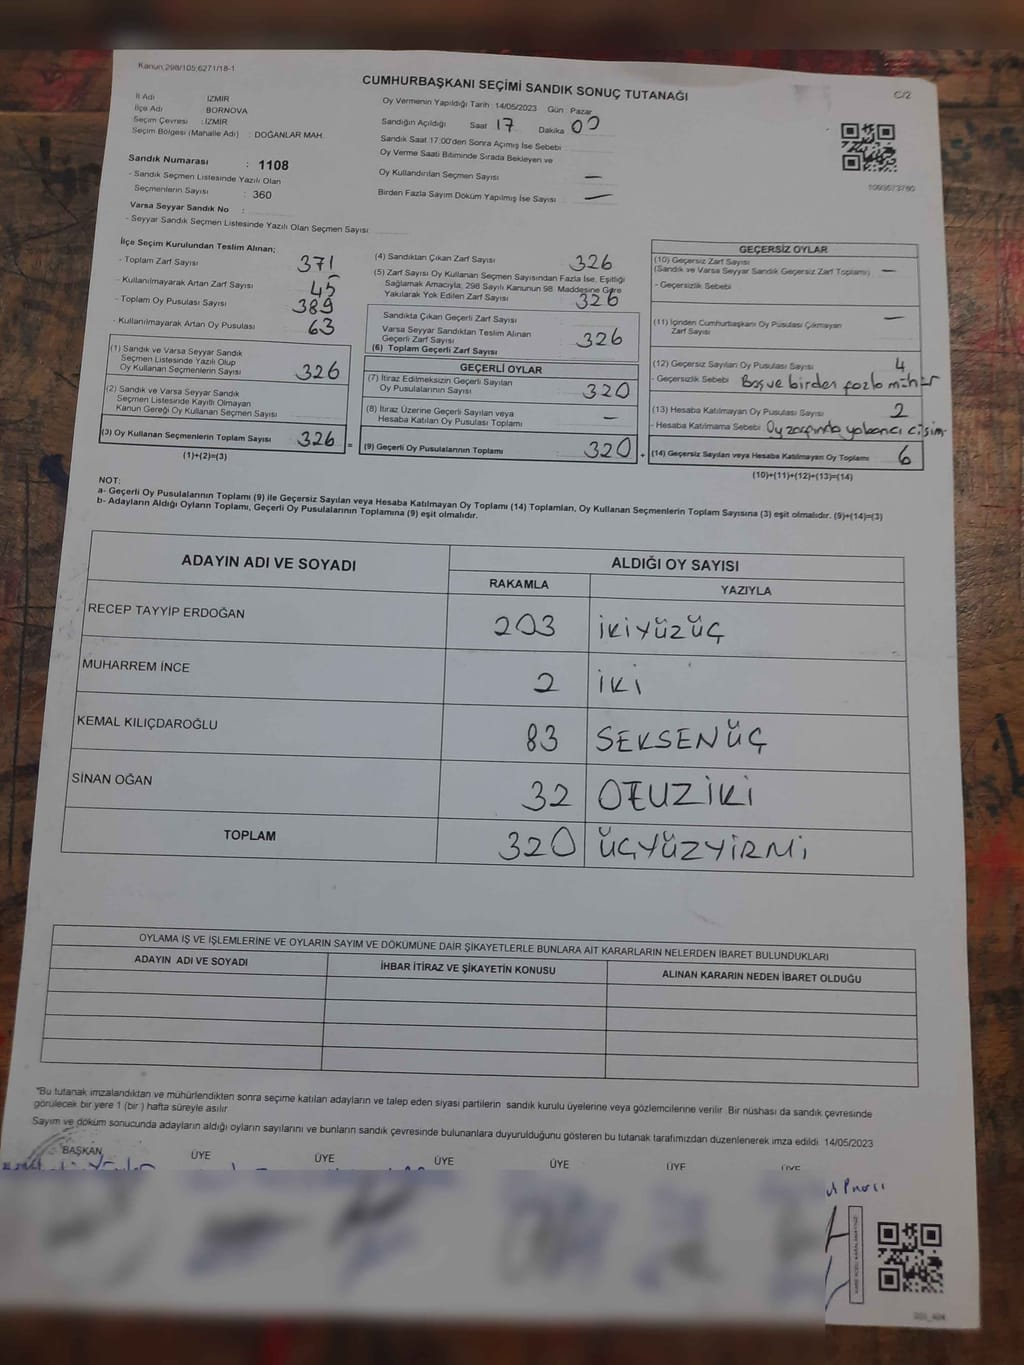 Kanun:298/105;6271/18-1
CUMHURBAŞKANI SEÇİMİ SANDIK SONUÇ TUTANAĞI
C/2
İl Adı : İZMİR
İlçe Adı : BORNOVA
Seçim Çevresi : İZMİR
Seçim Bölgesi (Mahalle Adı) : DOĞANLAR MAH.
Oy Vermenin Yapıldığı Tarih : 14/05/2023 Gün : Pazar
Sandığın Açıldığı Saat 17 Dakika 00
Sandık Saat 17:00'den Sonra Açılmış İse Sebebi
Oy Verme Saati Bitiminde Sırada Bekleyen ve
Oy Kullandırılan Seçmen Sayısı —
Birden Fazla Sayım Döküm Yapılmış İse Sayısı —
Sandık Numarası : 1108
- Sandık Seçmen Listesinde Yazılı Olan
Seçmenlerin Sayısı : 360
Varsa Seyyar Sandık No :
- Seyyar Sandık Seçmen Listesinde Yazılı Olan Seçmen Sayısı
İlçe Seçim Kurulundan Teslim Alınan;
- Toplam Zarf Sayısı 371
- Kullanılmayarak Artan Zarf Sayısı 45
- Toplam Oy Pusulası Sayısı 389
- Kullanılmayarak Artan Oy Pusulası 63
(1) Sandık ve Varsa Seyyar Sandık
Seçmen Listesinde Yazılı Olup
Oy Kullanan Seçmenlerin Sayısı 326
(2) Sandık ve Varsa Seyyar Sandık
Seçmen Listesinde Kayıtlı Olmayan
Kanun Gereği Oy Kullanan Seçmen Sayısı
(3) Oy Kullanan Seçmenlerin Toplam Sayısı 326
(1)+(2)=(3)
(4) Sandıktan Çıkan Zarf Sayısı 326
(5) Zarf Sayısı Oy Kullanan Seçmen Sayısından Fazla İse, Eşitliği
Sağlamak Amacıyla, 298 Sayılı Kanunun 98. Maddesine Göre
Yakılarak Yok Edilen Zarf Sayısı 326
Sandıkta Çıkan Geçerli Zarf Sayısı
Varsa Seyyar Sandıktan Teslim Alınan
Geçerli Zarf Sayısı 326
(6) Toplam Geçerli Zarf Sayısı
GEÇERLİ OYLAR
(7) İtiraz Edilmeksizin Geçerli Sayılan
Oy Pusulası Sayısı 320
(8) İtiraz Üzerine Geçerli Sayılan veya
Hesaba Katılan Oy Pusulası Toplamı —
= (9) Geçerli Oy Pusulalarının Toplamı 320 +
GEÇERSİZ OYLAR
(10) Geçersiz Zarf Sayısı
(Sandık ve Varsa Seyyar Sandık Geçersiz Zarf Toplamı) —
- Geçersizlik Sebebi
(11) İçinden Cumhurbaşkanı Oy Pusulası Çıkmayan —
Zarf Sayısı
(12) Geçersiz Sayılan Oy Pusulası Sayısı 4
- Geçersizlik Sebebi Boş ve birden fazla mühür
(13) Hesaba Katılmayan Oy Pusulası Sayısı 2
- Hesaba Katılmama Sebebi Oy zarfında yabancı cisim
(14) Geçersiz Sayılan veya Hesaba Katılmayan Oy Toplamı 6
(10)+(11)+(12)+(13)=(14)
NOT:
a- Geçerli Oy Pusulalarının Toplamı (9) ile Geçersiz Sayılan veya Hesaba Katılmayan Oy Toplamı (14) Toplamları, Oy Kullanan Seçmenlerin Toplam Sayısına (3) eşit olmalıdır. (9)+(14)=(3)
b- Adayların Aldığı Oyların Toplamı, Geçerli Oy Pusulalarının Toplamına (9) eşit olmalıdır.
ADAYIN ADI VE SOYADI
ALDIĞI OY SAYISI
RAKAMLA YAZIYLA
RECEP TAYYİP ERDOĞAN 203 İKİYÜZÜÇ
MUHARREM İNCE 2 İKİ
KEMAL KILIÇDAROĞLU 83 SEKSENÜÇ
SİNAN OĞAN 32 OTUZİKİ
TOPLAM 320 ÜÇYÜZYİRMİ
OYLAMA İŞ VE İŞLEMLERİNE VE OYLARIN SAYIM VE DÖKÜMÜNE DAİR ŞİKAYETLERLE BUNLARA AİT KARARLARIN NELERDEN İBARET BULUNDUKLARI
ADAYIN ADI VE SOYADI İHBAR İTİRAZ VE ŞİKAYETİN KONUSU ALINAN KARARIN NEDEN İBARET OLDUĞU
"Bu tutanak imzalandıktan ve mühürlendikten sonra seçime katılan adayların ve talep eden siyasi partilerin sandık kurulu üyelerine veya gözlemcilerine verilir. Bir nüshası da sandık çevresinde
görülecek bir yere 1 (bir) hafta süreyle asılır
Sayım ve döküm sonucunda adayların aldığı oyların sayılarını ve bunların sandık çevresinde bulunanlara duyurulduğunu gösteren bu tutanak tarafımızdan düzenlenerek imza edildi. 14/05/2023
BAŞKAN ÜYE ÜYE ÜYE ÜYE ÜYE ÜYE